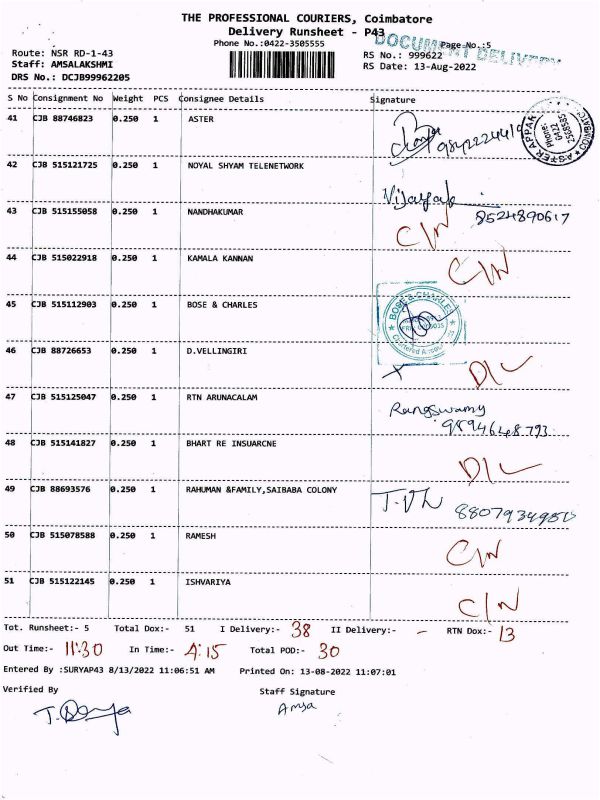 THE PROFESSIONAL COURIERS, Coimbatore
Delivery Runsheet - P43
DOCUMENT DELIVERY
Phone No.:0422-3505555
Page No.:5
Route: NSR RD-1-43
RS No.: 999622
Staff: AMSALAKSHMI
RS Date: 13-Aug-2022
DRS No.: DCJB99962205
S No Consignment No Weight PCS Consignee Details Signature
41 CJB 88746823 0.250 1 ASTER
42 CJB 515121725 0.250 1 NOYAL SHYAM TELENETWORK
43 CJB 515155058 0.250 1 NANDHAKUMAR C/N 8524890617
44 CJB 515022918 0.250 1 KAMALA KANNAN C/N
45 CJB 515112903 0.250 1 BOSE & CHARLES BOSE & CHARLES
46 CJB 88726653 0.250 1 D.VELLINGIRI D/L
47 CJB 515125047 0.250 1 RTN ARUNACALAM Rangswamy
9894648793
48 CJB 515141827 0.250 1 BHART RE INSUARCNE D/L
49 CJB 88693576 0.250 1 RAHUMAN &FAMILY,SAIBABA COLONY
50 CJB 515078588 0.250 1 RAMESH C/N
51 CJB 515122145 0.250 1 ISHVARIYA C/N
Tot. Runsheet:- 5 Total Dox:- 51 I Delivery:- 38 II Delivery:- - RTN Dox:- 13
Out Time:- 11:30 In Time:- 4:15 Total POD:- 30
Entered By :SURYAP43 8/13/2022 11:06:51 AM Printed On: 13-08-2022 11:07:01
Verified By Staff Signature
Amsa